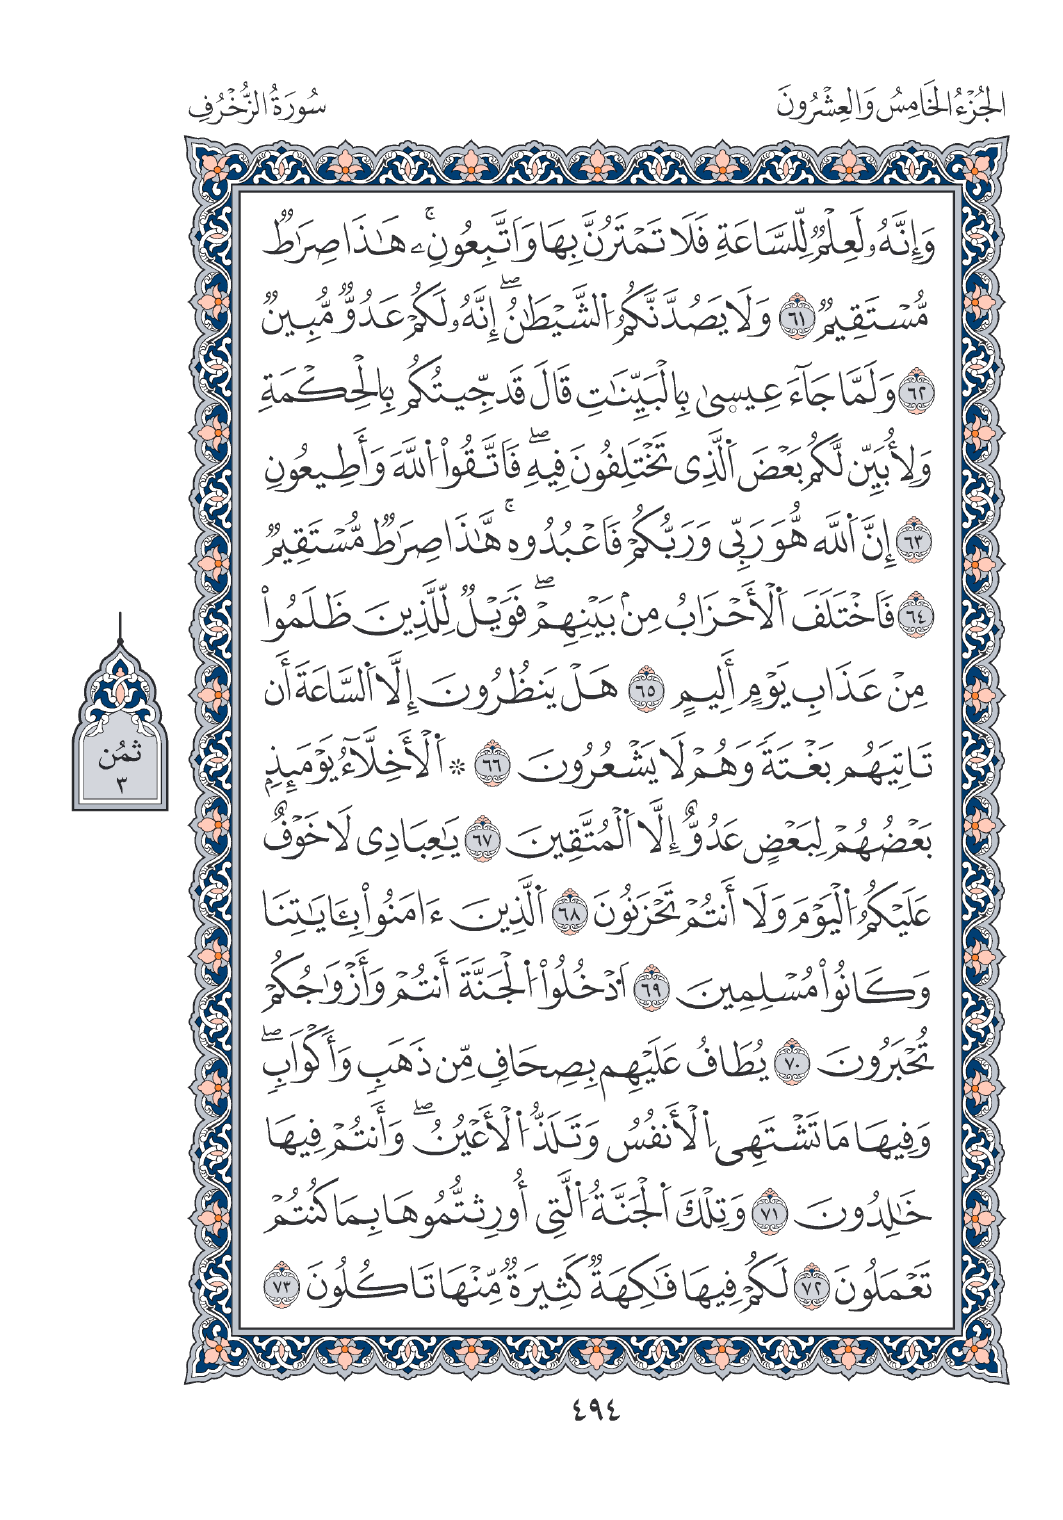 الجُزْءُ الخَامِسُ وَالعِشْرُونَ
سُورَةُ الزُّخْرُفِ
وَإِنَّهُۥ لَعِلْمٌ لِّلسَّاعَةِ فَلَا تَمْتَرُنَّ بِهَا وَاَتَّبِعُونِۦۚ هَٰذَا صِرَٰطٌ
مُّسْتَقِيمٌ ٦١ وَلَا يَصُدَّنَّكُمُ اُ۬لشَّيْطَٰنُۖ إِنَّهُۥ لَكُمْ عَدُوٌّ مُّبِينٌ
٦٢ وَلَمَّا جَآءَ عِيسۭىٰ بِالْبَيِّنَٰتِ قَالَ قَد جِّيتُكُم بِالْحِكْمَةِ
وَلِأُبَيِّن لَّكُم بَعْضَ اَ۬لَّذِى تَخْتَلِفُونَ فِيهِۖ فَاتَّقُواْ اُ۬للَّهَ وَأَطِيعُونِ
٦٣ إِنَّ اَ۬للَّه هُّوَ رَبِّى وَرَبُّكُمْ فَاعْبُدُوهۚ هَّٰذَا صِرَٰطٌ مُّسْتَقِيمٌ
٦٤ فَاخْتَلَفَ اَ۬لْأَحْزَابُ مِنۢ بَيْنِهِمْۖ فَوَيْلٌ لِّلَّذِينَ ظَلَمُواْ
مِنْ عَذَابِ يَوْمٍ أَلِيمٍ ٦٥ هَلْ يَنظُرُونَ إِلَّا اَ۬لسَّاعَةَ أَن
تَاتِيَهُم بَغْتَةً وَهُمْ لَا يَشْعُرُونَ ٦٦ * اَ۬لْأَخِلَّآءُ يَوْمَئِذِۢ
بَعْضُهُمْ لِبَعْضٍ عَدُوٌّ إِلَّا اَ۬لْمُتَّقِينَ ٦٧ يَٰعِبَادِى لَا خَوْفٌ
عَلَيْكُمُ اُ۬لْيَوْمَ وَلَا أَنتُمْ تَحْزَنُونَ ٦٨ اَ۬لَّذِينَ ءَامَنُواْ بِـَٔايَٰتِنَا
وَكَانُواْ مُسْلِمِينَ ٦٩ اَ۟دْخُلُواْ اُ۬لْجَنَّةَ أَنتُمْ وَأَزْوَٰجُكُمْ
تُحْبَرُونَ ٧٠ يُطَافُ عَلَيْهِم بِصِحَافٍ مِّن ذَهَبٍ وَأَكْوَابٍۖ
وَفِيهَا مَا تَشْتَهِى اِ۬لْأَنفُسُ وَتَلَذُّ اُ۬لْأَعْيُنُۖ وَأَنتُمْ فِيهَا
خَٰلِدُونَ ٧١ وَتِلْكَ اَ۬لْجَنَّةُ اُ۬لَّتِى أُورِثتُّمُوهَا بِمَا كُنتُمْ
تَعْمَلُونَ ٧٢ لَكُمْ فِيهَا فَٰكِهَةٌ كَثِيرَةٌ مِّنْهَا تَاكُلُونَ ٧٣
ثمُن
٣
٤٩٤